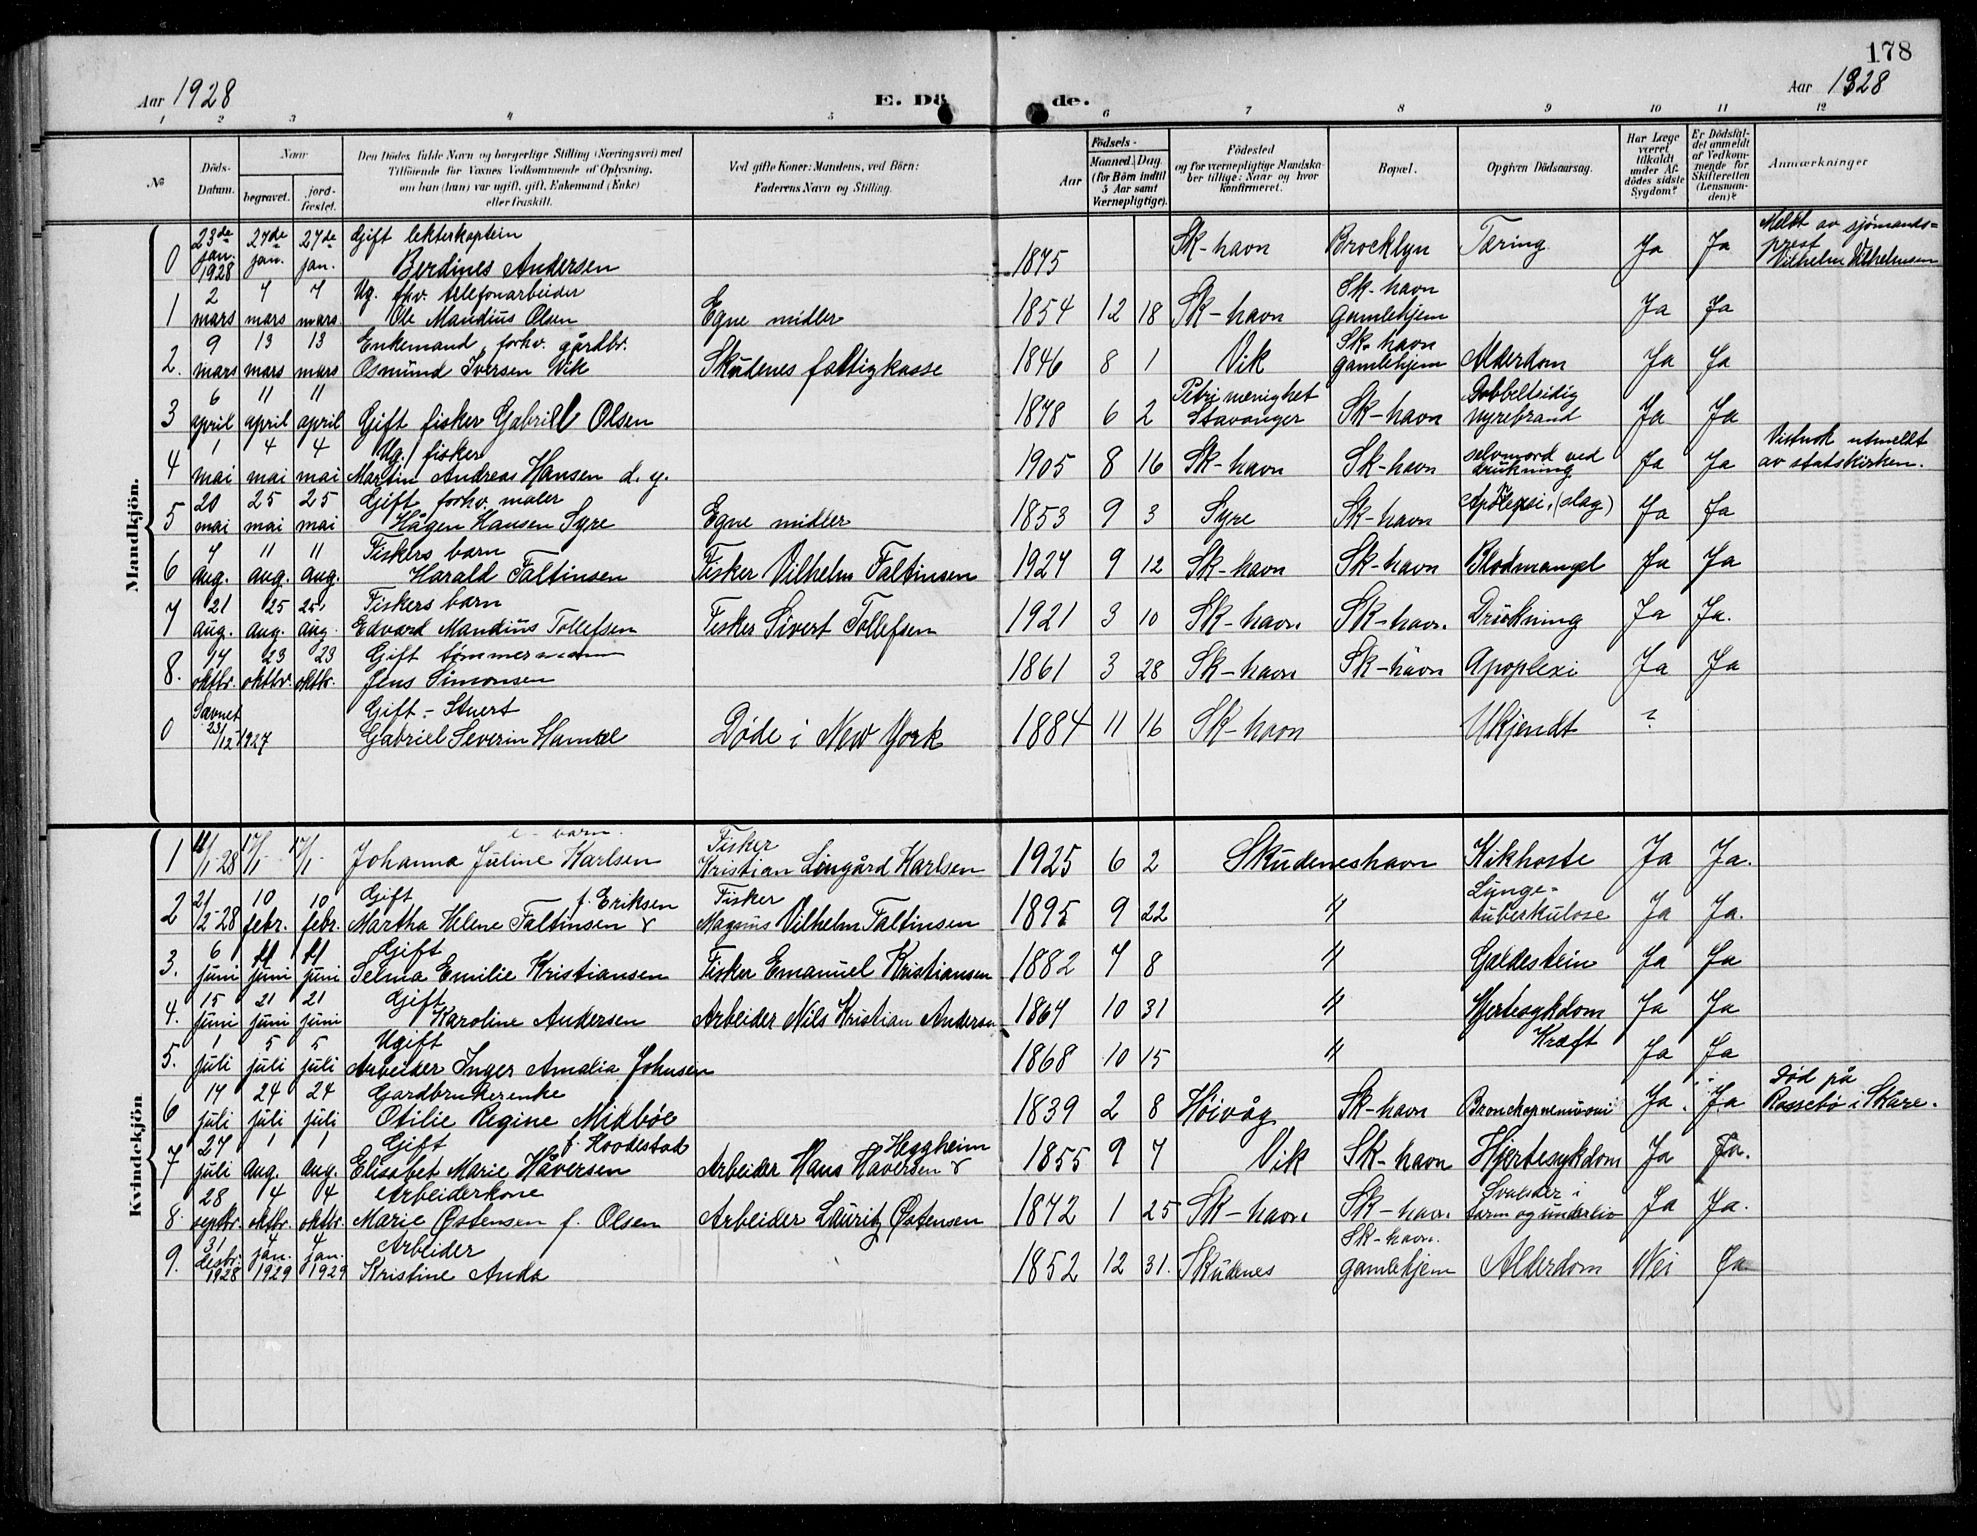 178
Aar 1928
E. Dö de.
Aar 1928
1 2 3 4 5 6 7 8 9 10 11 12
No
Döds-Datum.
Naar
begravet.
jord-fæstet.
Den Dödes fulde Navn og borgerlige Stilling (Næringsvei) med
Tilföiende for Voxnes Vedkommende af Oplysning,
om han (hun) var ugift, gift, Enkemand (Enke)
eller fraskilt.
Ved gifte Koner: Mandens, ved Börn:
Faderens Navn og Stilling.
Födsels-
Aar
Maaned. Dag.
(for Börn indtil
5 Aar samt
Værnepligtige).
Födested
og for værnepligtige Mandska-
ber tillige: Naar og hvor
konfirmeret.
Bopæl.
Opgiven Dödsaarsag.
Har Læge
været
tilkaldt
under Af-
dödes sidste
Sygdom?
Er Dödsfal-
det anmeldt
af Vedkom-
mende for
Skifteretten
(Lensman-
den)?
Anmærkninger
Mandkjön.
0 23de jan. 1928 27de jan. 27de jan. Gift lekterkaptein
Berdines Andersen 1875 Sk-havn Brocklyn Tæring Ja Ja Meldt av sjömands=
prest
Vilhelm Vilhelmsen
1 2 mars 7 mars 7 mars Ug. fhv. telefonarbeider
Ole Mandius Olsen Egne midler 1854 12 18 Sk-havn Sk-havn
gamlehjem Ja Ja
2. 9 mars 13 mars 13 mars Enkemand, forhv. gårdbr.
Osmund Iversen Vik Skudenes fattigkasse 1846 8 1 Vik Sk-havn
gamlehjem Alderdom Ja Ja
3 6 april 11 april 11 april Gift fisker Gabriel Olsen 1878 6 2 Petri menighet
Stavanger Sk-havn Dobbeltsidig
nyrebrand Ja Ja
4 1 mai 4 mai 4 mai Ug. fisker
Martin Andreas Hansen d. y. 1905 8 16 Sk-havn Sk-havn selvmord ved
drukning Ja Ja Vistnok utmeldt
av statskirken.
5 20 mai 25 mai 25 mai Gift forhv. maler
Hågen Hansen Syre Egne midler 1853 9 3 Syre Sk-havn Apoplexi, (slag) Ja Ja
6 7 aug. 11 aug. 11 aug. Fiskers barn
Harald Faltinsen Fisker Vilhelm Faltinsen 1927 9 12 Sk-havn Sk-havn Blodmangel Ja Ja
7 21 aug. 25 aug. 25 aug. Fiskers barn
Edvard Mandius Tollefsen Fisker Sivert Tollefsen 1921 3 10 Sk-havn. Sk-havn. Drukning Ja Ja.
8. 14 oktbr. 23 oktbr. 23 oktbr. Gift tömmermann
Jens Simonsen 1861 3 28 Sk-havn Sk-havn Apoplexi Ja Ja
0 Savnet 23/12 1927 Gift - Stuert
Gabriel Severin Døde i New York 1884 11 16 Sk-havn Ukjendt ?
Kvindekjön
1 11/1-28 17/1 17/1 barn.
Johanna Juline Karlsen Fisker
Kristian Lingård Karlsen 1925 6 2 Skudeneshavn Kikhoste Ja Ja.
2 2-28 10 febr. 10 febr. Gift f. Eriksen
Martha Helene Faltinsen Fisker
Magnus Vilhelm Faltinsen 1895 9 22 " Lunge-
tuberkulose Ja Ja.
3. 6 juni 11 juni 11 juni Gift
Selma Emilie Kristiansen Fisker Emanuel Kristiansen 1882 7 8 " Galdestein Ja Ja
4. 15 juni 21 juni 21 juni Gift
Karoline Andersen Arbeider Nils Kristian Andersen 1867 10 31 " Hjertesykdom Ja Ja
5. 1 juli 5 juli 5 juli Ugift
Arbeider Inger Amalia Johnsen 1868 10 15 " Kræft Ja Ja
6 17 juli 24 juli 24 juli Gardbrukerenke
Otilie Regine Midböe 1839 2 8 Höivåg Sk-havn Ja. Ja Död på
i Skåre.
7 27 juli 1 aug. 1 aug. Gift
Elisabet Marie Håversen Heggheim
Arbeider Hans Håversen 1855 9 7 Vik Sk-havn Hjertesykdom Ja Ja.
8. 28 septbr. 4 oktbr. 4 oktbr. Arbeiderkone
Marie Østensen f. Olsen Arbeider Lauritz Østensen 1872 1 25 Sk-havn. Sk-havn. Svulster i
tarm og underliv Ja Ja.
9. 31 desbr. 1928 4 jan. 1929 4 jan. 1929 Arbeider
Kristine Anda 1852 12 31. Skudenes Sk-havn.
gamlehjem Alderdom Nei Ja